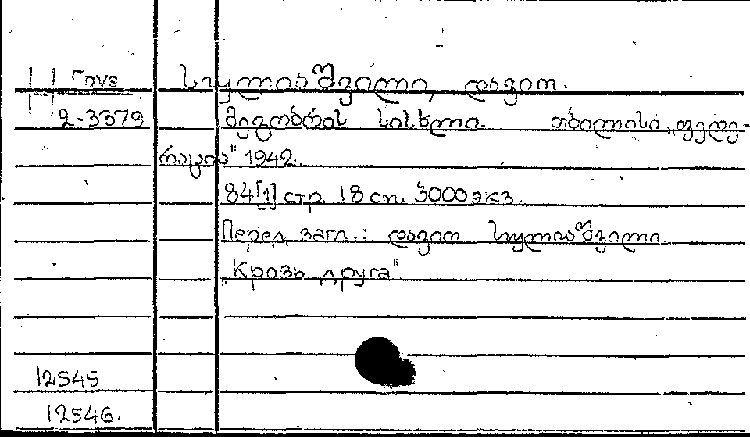 სულიაშვილი, დავით.
2-3379 მეგობრის სისხლი. თბილისი, „ფედე-
რაცია" 1942.
84[1] стр. 18 см. 3000 экз.
Перед загл.: დავით სულიაშვილი
„Кровь друга"
12545
12546.